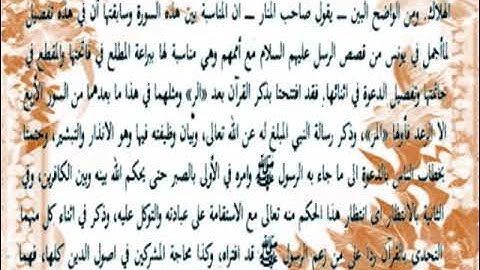 الهلاك. ومن الواضح البين ــ يقول صاحب المنار ــ ان المناسبة بين هذه السورة وسابقتها أن في هذه تفصيل
لما أجمل في يونس من قصص الرسل عليهم السلام مع أممهم وهي مناسبة لها ببراعة المطلع في فاتحتها والمقطع في
خاتمتها وتفصيل الدعوة في اثنائها. فقد افتتحتا بذكر القرآن بعد «الر» ومثلهما في هذا ما بعدهما من السور الأربع
الا الرعد فأولها «المر»، وذكر رسالة النبي المبلغ له عن الله تعالى، وبيان وظيفته فيها وهو الانذار والتبشير، وختمتا
بخطاب الناس بالدعوة الى ما جاء به الرسول ﷺ وامره في الأولى بالصبر حتى يحكم الله بينه وبين الكافرين، وفي
الثانية بالانتظار اى انتظار هذا الحكم منه تعالى مع الاستقامة على عبادته والتوكل عليه، وذكر في اثناء كل منهما
التحدى بالقرآن ردا على من زعم الرسول ﷺ قد افتراه، وكذا محاجة المشركين في اصول الدين كلها، فهما